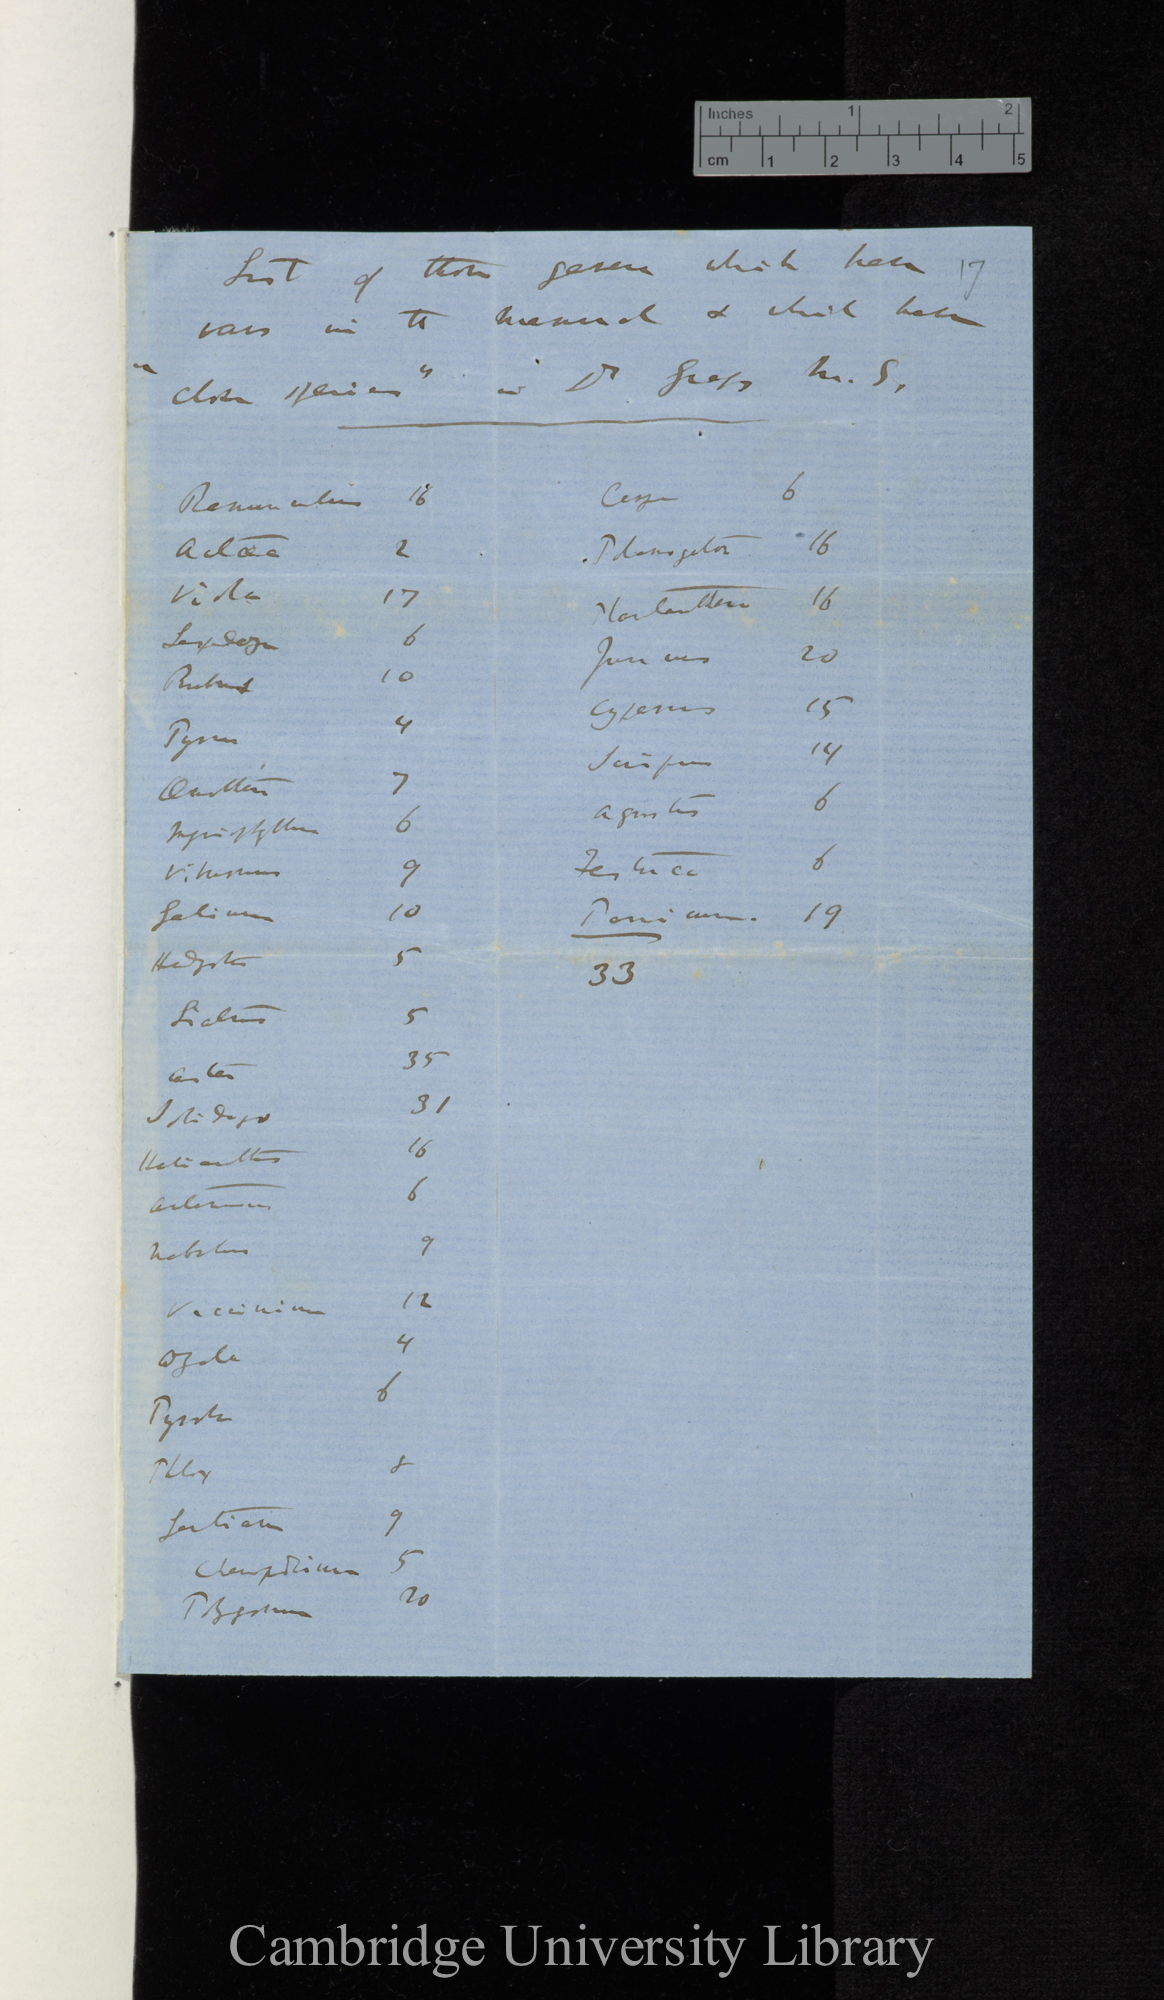 Inches 1 2
cm 1 2 3 4 5
List of those genera which have 17
vars in the Manual & which have
"close species" in Dr Gray's M.S.
Ranunculus 16
Actaea 2
Viola 17
Lespedeza 6
Rubus 10
Pyrus 4
Oenothera 7
Myriophyllum 6
Viburnum 9
Galium 10
Hedyotis 5
Liatris 5
Aster 35
Solidago 31
Helianthus 16
Artemisia 6
Nabalus 9
Vaccinium 12
4
Pyrola 6
Phlox 8
Gentiana 9
Chenopodium 5
Polygonum 20
6
Potamogeton 16
Platanthera 16
Juncus 20
Cyperus 15
Scirpus 14
Agrostis 6
Festuca 6
Panicum. 19
33
Cambridge University Library